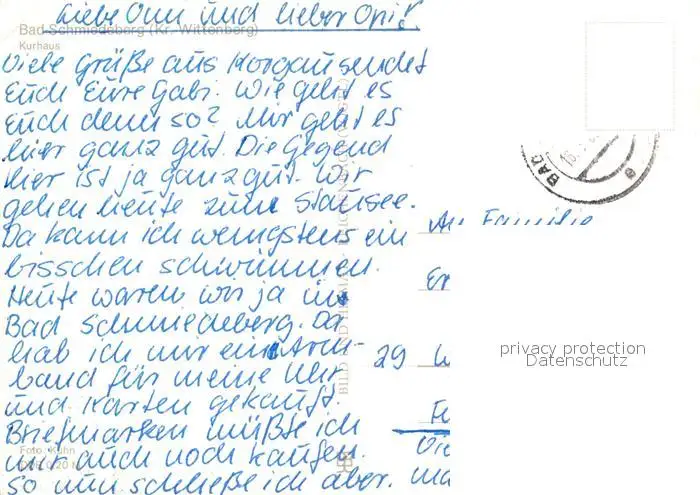 Liebe Omi und lieber Opi!
Bad Schmiedeberg (Kr. Wittenberg)
Kurhaus
Viele Grüße aus sendet
Euch Eure Gabi. Wie geht es
Euch denn so? Mir geht es
hier ganz gut. Die Gegend
hier ist ja ganz gut. Wir
gehen heute zum Stausee.
Da kann ich wenigstens ein
bisschen schwimmen.
Heute waren wir ja in
Bad Schmiedeberg. Da
hab ich mir ein Arm-
band für meine Uhr
und Karten gekauft.
Briefmarken müßte ich
mir auch noch kaufen.
So nun schließe ich aber.
Foto: Kühn
BILD UND HEIMAT
An Familie
29
BAD
privacy protection
Datenschutz